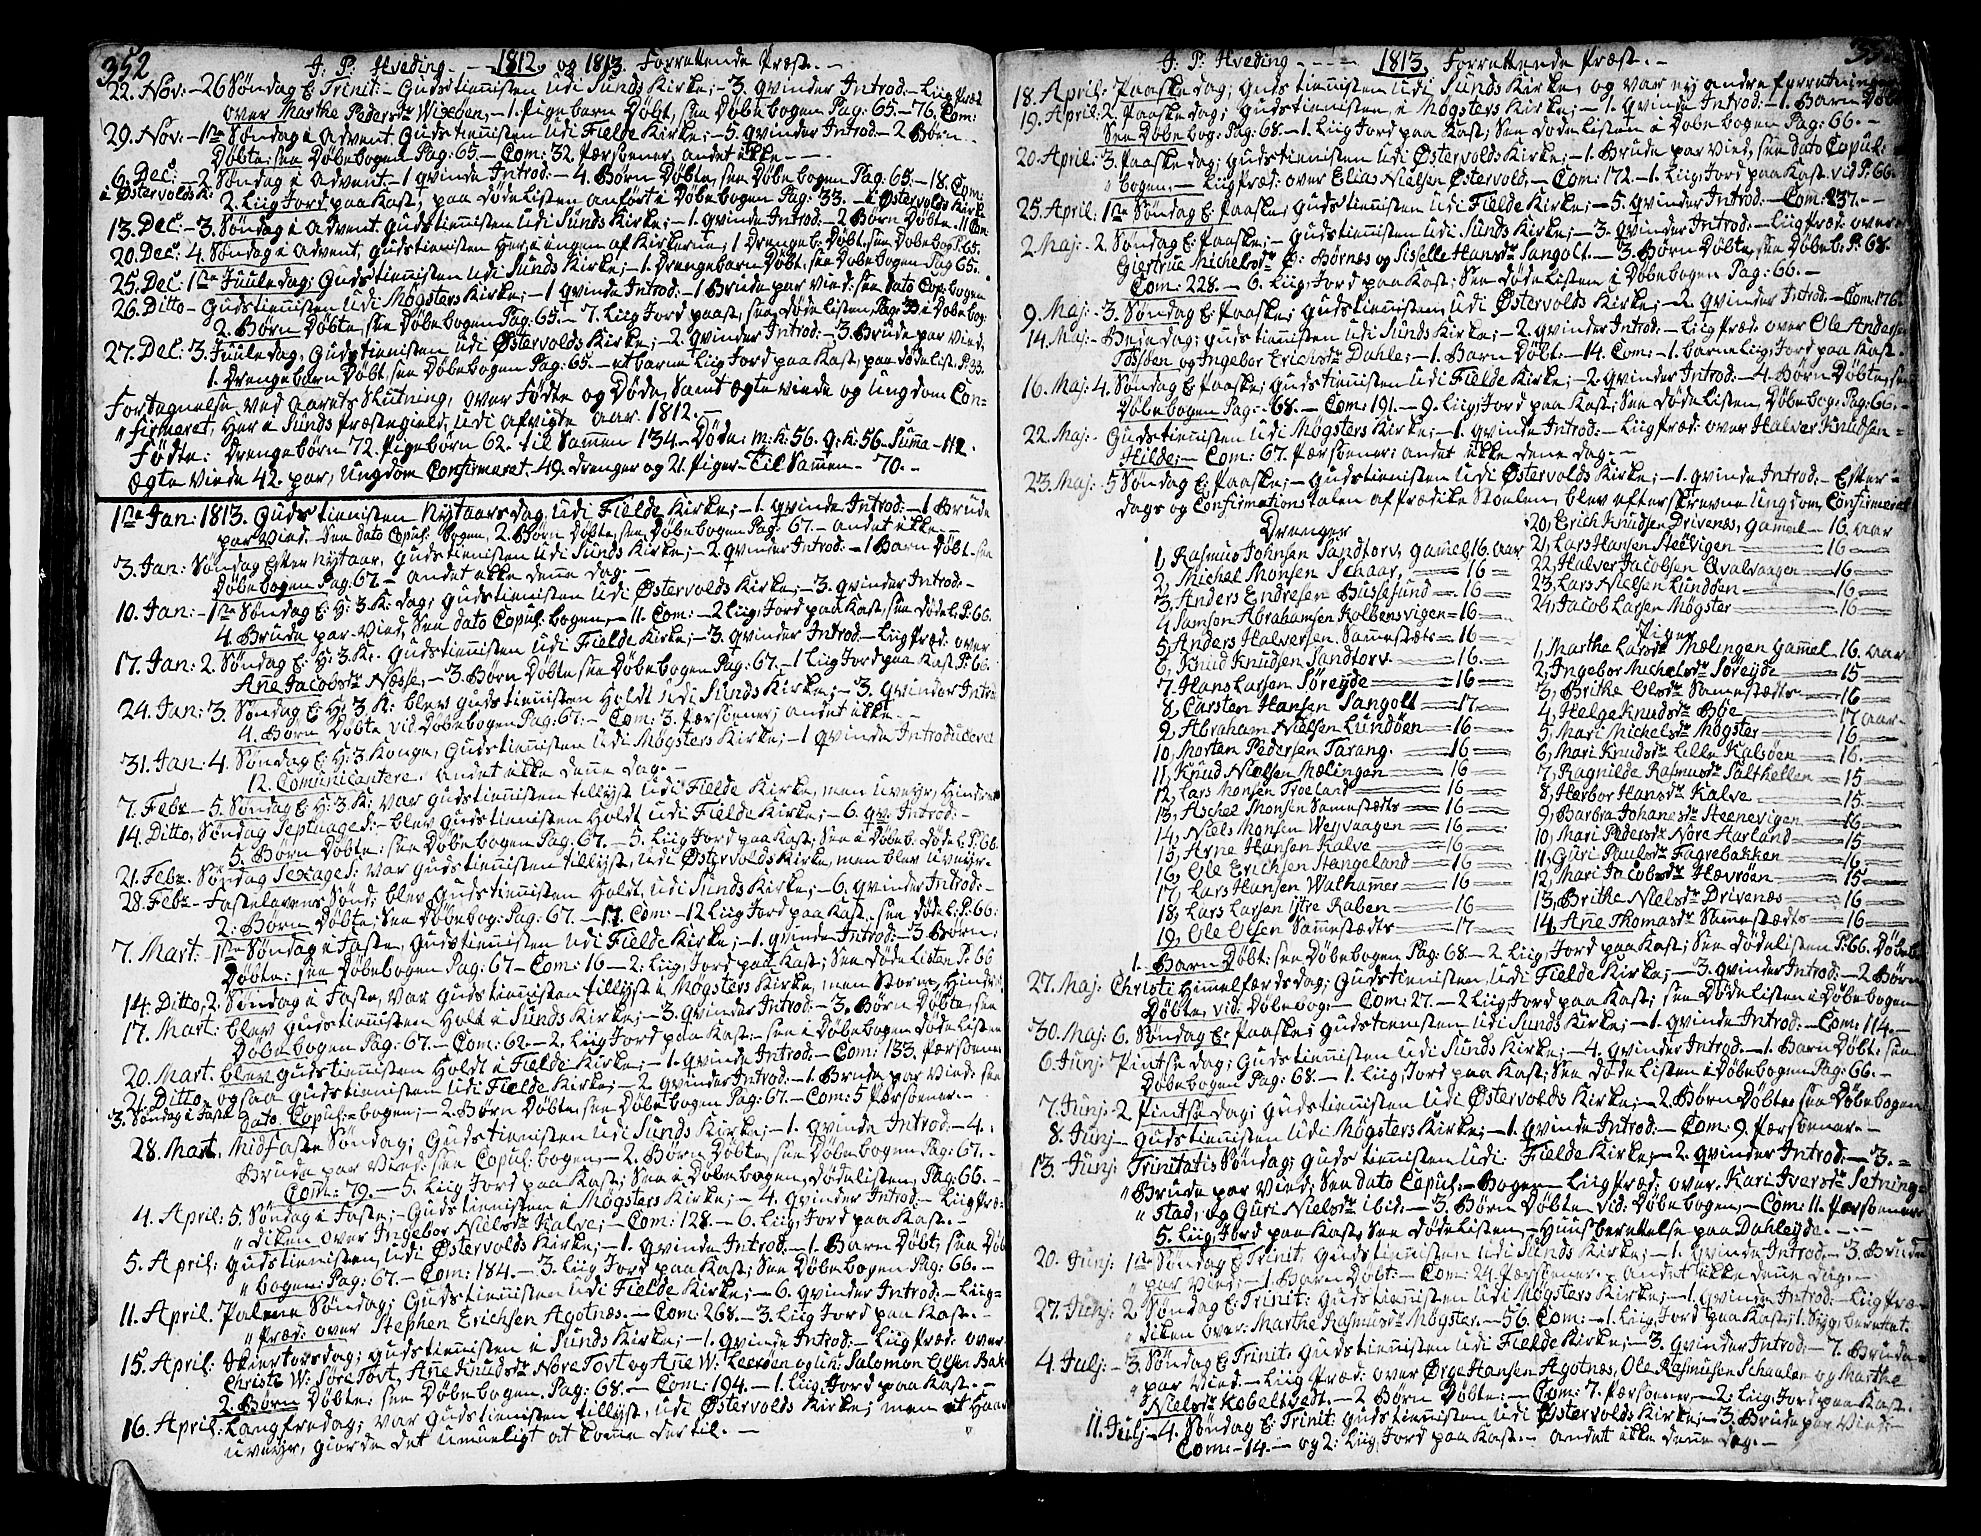 352
J. P: Hveding. - - 1812, og 1813. Forrettende Præst. -
22. Nov: - 26 Søndag E. Trinit: - Gudstienisten udi Sunds Kirke; - 3. qvinder Introd: - Liig Præd
over Marthe Pedersdr Wixøen, - 1. Pigebarn Døbt, see Døbebogen Pag: 65. - 76. Com:
29. Nov: - 1ste Søndag i Advent. Gudstienisten udi Fielde Kirke; - 5. qvinder Introd: - 2 Børn
Døbte; see Døbebogen Pag: 65. - Com: 32. Pærsoener, andet ikke - - -
6. Dec: - 2. Søndag i Advent. - 1 qvinde Introd: - 4. Børn Døbte, see Døbebogen Pag: 65. - 18. Com:
i Østervolds K: 2. Liig Jord paa Kast, paa dødeListen anførte i Døbebogen Pag: 33. - i Østervolds Kirke
13. Dec: - 3. Søndag i Advent. Gudstienisten udi Sunds Kirke; - 1. qvinde Introd: - 2 Børn Døbte. - 11 Com:
20. Dec: 4. Søndag i Advent, Gudstienisten Her i ingen af Kirkerne, 1 Drengeb: Døbt. see Døbebog P. 65.
25. Dec: 1ste Juuledag; Gudstienisten udi Sunds Kirke; - 1. Drengebarn Døbt. see Døbebogen Pag 65.
26. Ditto - Gudstienisten udi Møgsters Kirke; - 1 qvinde Introd: - 1 Brude par vied: see dato Cop: bogen
2. Børn Døbte, see Døbebogen Pag: 65. - 7. Liig Jord paast, see dødeListen, Pag: 33 i Døbebog:
27. Dec: 3. Juuledag, Gudstienisten udi Østervolds Kirke; - 2. qvinder Introd: - 3. Brude par vied.
1. Drengebarn Døbt, see Døbebogen Pag: 65. - et barne Liig Jord paa Kast, paa dødelist. P. 33.
Fortegnelse ved Aarets Slutning, over Fødte og Døde, Samt Ægteviede og ungdom Con-
" firmeret, Her i Sunds Præstegield, udi afvigte aar 1812. -
Fødte: Drengebørn 72. Pigebørn 62. til Samen 134. - Døde: m: K: 56. q: K: 56. Suma - 112.
Ægte Viede 42. par, Ungdom Confirmeret. 49. drenger og 21. Piger - Til Samen - 70. -
1ste Jan: 1813. Gudstienisten Nytaarsdag, udi Fielde Kirke; - 1. qvinde Introd: - 1 Brude
par Vied. See dato Copul: Bogen, 2. Børn Døbte, see Døbebogen Pag: 67. - andet ikke - -
3. Jan: Søndag Efter Nytaar, Gudstienisten udi Sunds Kirke; - 2. qvinder Introd: - 1 Barn Døbt. see
Døbebogen Pag: 67 - andet ikke denne dag: -
10. Jan: - 1ste Søndag E: H: 3. K: dag; Gudstienisten udi Østervolds Kirke; - 3. qvinder Introd: -
4. Brude par Vied, See dato Copul: bogen, - 11. Com: - 2 Liig Jord paa Kast, see døde L: P: 66.
17. Jan: 2. Søndag E: H: 3. K: Gudstienisten udi Fielde Kirke; - 3. qvinder Introd: - Liig Præd: over
Ane Jacobsdr Næsse, - 3. Børn Døbte see Døbebogen Pag: 67. - 1 Liig Jord paa Kast P: 66.
24. Jan: 3. Søndag E: H: 3. K: blev Gudstienisten Holdt udi Sunds Kirke; - 3. qvinder Introd
4. Børn Døbte vid. Døbebogen Pag: 67. - Com: 3. Pærsoener; andet ikke. - -
31. Jan: 4. Søndag E: H: 3. Konge, Gudstienisten udi Møgsters Kirke; - 1 qvinde Introduceret
12. Comunicantere. andet ikke denne dag. -
7. Febr: - 5. Søndag E: H: 3. K: var Gudstienisten tillyst udi Fielde Kirke, men uveyr, Hindret
14. Ditto, Søndag Septuages: - blev Gudstienisten Holdt udi Fielde Kirke; - 6. qv: Introd: -
5. Børn Døbte: see Døbebogen Pag: 67. - 5. Liig Jord paa Kast: See i Døbeb: Døde L: P: 66.
21. Febr: Søndag Sexages: var Gudstienisten tillyst, udi Østervolds Kirke, men blev uveyr. -
28. Febr: - Fastelavens Sønd: blev Gudstienisten Holdt, udi Sunds Kirke; - 6. qvinder Introd: -
2: Børn Døbte; See Døbebog: Pag: 67. - 17. Com: - 12 Liig Jord paa Kast. see døde L: P: 66:
7. Mart: - 1ste Søndag i Faste, Gudstienisten udi Fielde Kirke; - 1. qvinde Introd: - 3. Børn:
Døbte: see Døbebogen Pag: 67 - Com: 16 - 2: Liig, Jord paa Kast; See DødeListen P: 66
14. Ditto, 2. Søndag i Faste, var Gudstienisten tillyst i Møgsters Kirke, men Storm, Hindret
17. Mart: blev Gudstienisten Holt i Sunds Kirke; - 3. qvinder Introd: - 3. Børn Døbte, see
Døbebogen Pag: 67. - Com: 62. - 2. Liig Jord paa Kast: - see i Døbebogen DødeListen
20. Mart. blev Gudstienisten Holdt i Fielde Kirke; - 1. qvinde Introd: - Com: 133. Pærsoener
21. Ditto, ogsaa Gudstienisten udi Fielde Kirke; - 2. qvinder Introd: - 1. Brude par Vied: see
3. Søndag i Faste dato. Copul: = bogen; - 2. Børn Døbte; see Døbebogen Pag: 67. - Com: 5 Pærsoener. -
28. Mart. Midfaste Søndag; Gudstienisten udi Sunds Kirke; - 1. qvinde Introd: - 4.
Brude par Vied: see Copul: bogen, - 2. Børn Døbte, see Døbebogen Pag: 67. -
Com: 79. - 5. Liig Jord paa Kast; See i Døbebogen, dødelisten, Pag: 66. -
4. April: 5. Søndag i Faste, - Gudstienisten i Møgsters Kirke; - 4. qvinder Introd: - Liig Præ=
" diken over Ingebor Nielsdr Kalve; - Com: 128. - 6. Liig, Jord paa Kast. -
5. April: Gudstienisten, udi Østervolds Kirke; - 1. qvinde Introd. - 1. Barn Døbt; see Døb
" bogen: Pag: 67. - Com: 184. - 3. Liig Jord paa Kast; See Døbebogen Pag: 66. -
11. April. Palme Søndag; Gudstienisten udi Fielde Kirke; - 6. qvinder Introd: - Liig=
" Præd: over Stephen Erichsen Agotnæs. - Com: 268. - 3. Liig Jord paa Kast. -
15. April: Skiertorsdag; Gudstienisten i Sunds Kirke; - 1. qvinde Introd: - Liig Præd: over
Christi W: Søre Tøvt, Ane Knudsdr Nore Tovt og Ane W: Leerøen og lik: Salomon Olsen Bak
2. Børn Døbte: see Døbebogen. Pag: 68. - Com: 194. - 1. Liig, Jord paa Kast. -
16. April: Langfredag; var Gudstienisten tillyst, udi Østervolds Kirke; men et Haar
uveyr, giorde det umueligt at Come der til. -
J: P: Hveding - - - - 1813. Forrettende Præst. -
18. April: - Paaskedag; Gudstienisten udi Sunds Kirke, og var ey andre forretninger
19. April: 2. Paaskedag; Gudstienisten, i Møgsters Kirke; - 1. qvinde Introd: - 1. Barn Døbt
See Døbebog: Pag: 68. - 1. Liig Jord paa Kast; See dødeListen i Døbebogen Pag: 66. -
20. April: 3. Paaskedag; Gudstienisten udi Østervolds Kirke; - 1. Brude par Vied, see dato Copul:
" bogen, - Liig Præd: over Elias Nielsen Østervold. - Com: 172. - 1. Liig, Jord paa Kast vid P: 66.
25. April: 1ste Søndag E: Paaske, Gudstienisten udi Fielde Kirke; - 5. qvinder Introd: - Com: 237. -
2. Maj: 2. Søndag E: Paaske; - Gudstienisten udi Sunds Kirke; - 3. qvinder Introd: - Liig Præd: over
Giertrue Michelsdr E: Børnæs og Siselle Hansdr Sangolt. - 3. Børn Døbte, see Døbeb: P: 68.
Com: 228. - 6. Liig, Jord paa Kast; See dødeListen i Døbebogen Pag: 66. -
9. Maj: - 3. Søndag E: Paaske; Gudstienisten udi Østervolds Kirke; - 2. qvinder Introd: - Com: 176.
14. Maj: - Bededag; Gudstienisten udi Sunds Kirke; - 2. qvinder Introd: - Liig Præd: over Ole Andersen
Tøssøen og Ingebor Erichsdr Dahle; - 1. Barn Døbt: - 14. Com: - 1. barneliig, Jord paa Kast.
16. Maj: 4. Søndag E: Paaske; Gudstienisten udi Fielde Kirke; - 2. qvinder Introd: - 4. Børn Døbte, see
Døbebogen Pag: 68. - Com: 191. - 9. Liig, Jord paa Kast; See DødeListen, Døbebog: Pag: 66. -
22. Maj: - Gudstienisten udi Møgsters Kirke; - 1. qvinde Introd: - Liig Præd: over Halver Knudsen =
Hilde; - Com: 67. Pærsoener; andet ikke denne dag. - -
23. Maj: 5 Søndag E: Paaske, - Gudstienisten udi Østervolds Kirke; - 1. qvinde Introd. - Efter =
dags og Confirmationstalen af Prædike Stoelen, blev efterskrevne Ungdom Confirmeret
Drenger
1, Rasmus Johnsen Sandtorv, gamel 16. aar
2, Michel Monsen Schaar, — 16 —
3, Anders Endresen Bussesund — 16 —
4, Samson Abrahamsen Kolbensvigen — 16 —
5, Anders Halversen Samestæds — 16 —
6, Knud Knudsen Sandtorv — 16 —
7, Hans Larsen Sørejde — 16 —
8, Carsten Hansen Sangolt — 17 —
9, Abraham Nielsen Lundøen — 16 —
10, Morten Pedersen Tarang. — 16 —
11, Knud Nielsen Mælingen — 16 —
12, Lars Monsen Troeland — 16 —
13, Aschel Monsen Samestædts — 16 —
14, Niels Monsen Wejvaagen — 16 —
15, Arne Hansen Kalve — 16 —
16, Ole Erichsen Stangeland — 16 —
17, Lars Hansen Walhamer — 16 —
18, Lars Larsen jtre Raben — 16 —
19, Ole Olsen Samestædts — 17 —
20, Erich Knudsen Drivenæs, gammel — 16. aar
21, Lars Hansen Steevigen — 16 —
22, Halver Jacobsen Qvalvaagen — 16 —
23, Lars Nielsen Lundøen — 16 —
24, Jacob Larsen Møgster — 16 —
Piger
1, Marthe Larsdr Mælingen Gammel. 16. aar
2, Ingebor Michelsdr Sørejde — 15 —
3, Brithe Olsdr Samestædts — 16 —
4, Helge Knudsdr Bøe — 17 aar
5, Mari Michelsdr Møgster — 16 —
6, Mari Knudsdr Lille Kalsøen — 16. —
7, Ragnilde Rasmusdr Salthellen — 15 —
8, Herbor Hansdr Kalve — 15. —
9, Barbra Johanesdr Steenevigen — 16 —
10, Mari Pedersdr Nore Harland — 15 —
11, Guri Paulsdr Fagrebakken — 16 —
12, Mari Jacobsdr Hævrøen — 15 —
13, Brithe Nielsdr Drivenæs — 16 —
14, Ane Thomasdr Samestædts — 16 —
1. Barn Døbt: see Døbebogen Pag: 68. - 2. Liig, Jord paa Kast; See Dødelisten P: 66. Døbeb
27. Maj: Christi Himmelfærdsdag; Gudstienisten, udi Fielde Kirke; - 3. qvinder Introd: - 2 Børn
Døbte, vid: Døbebog: - Com: 27. - 2 Liig Jord paa Kast; see DødeListen i Døbebogen
30. Maj: 6. Søndag E: Paaske; Gudstienisten udi Sunds Kirke; - 1. qvinde Introd: - Com: 114. -
6. Junj: Pintse dag; Gudstienisten udi Sunds Kirke; - 4. qvinder Introd: - 1. Barn Døbt: see
Døbebogen Pag: 68. - 1. Liig, Jord paa Kast; See DødeListen i Døbebogen Pag: 66. -
7. Junj: 2. Pintse dag; Gudstienisten udi Østervolds Kirke; - 2. Børn Døbte: see Døbebogen
8. Junj - Gudstienisten udi Møgsters Kirke; - 1. qvinde Introd: - Com: 9. Pærsoener. -
13. Junj: Trinitatis Søndag; Gudstienisten udi: Fielde Kirke; - 2. qvinder Introd: - 3. =
" Brude par Vied; See dato Copul: - Bogen - Liig Præd: over. Kari Iversdr Setning=
" stad, og Guri Nielsdr ibid: - 3. Børn Døbte vid: Døbebogen, - Com: 11. Pærsoener
5. Liig, Jord paa Kast, See dødeListen, - Huusberettelse paa Dahlejde. -
20. Junj: 1ste Søndag E. Trinit: Gudstienisten udi Sunds Kirke; - 1. qvinde Introd: - 3. Brude
" par Vied; - 1. Barn Døbt: - Com: 24. Pærsoener. - andet ikke denne dag. -
27. Junj: 2. Søndag E: Trinit: Gudstienisten udi Møgsters Kirke; - 1. qvinde Introd: - Liig Præ=
" diken over: Marthe Rasmusdr Møgster - 56. Com: - 1. Liig, Jord paa Kast; 1. Syg: berettet.
4. Julj: - 3 Søndag E: Trinit: Gudstienisten udi Fielde Kirke; - 3. qvinder Introd: - 7. Brude=
" par Vied. - Liig Præd: over Ørge Hansen Agotnæs, Ole Rasmusen Schaalen og Marthe
Nielsdr Købeltvedt. - 2. Børn Døbte: - Com: 7. Pærsoener. - 2: Liig, Jord paa Kast.
11. Julj - 4. Søndag E: Trinit: Gudstienisten udi Østervolds Kirke; - 3. Brude par Vied:
Com: - 14. - og 2: Liig, Jord paa Kast. - andet ikke denne dag. -